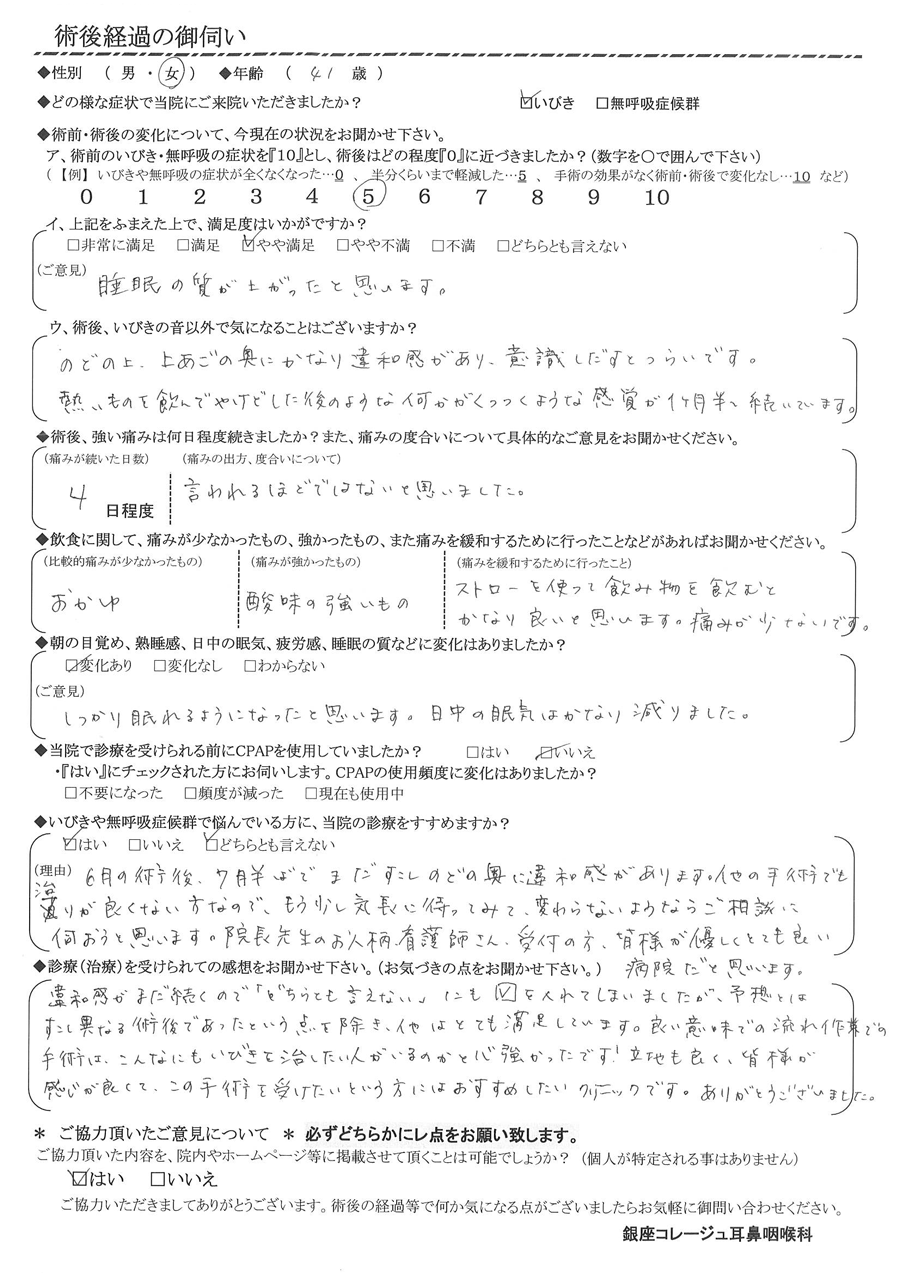 術後経過の御伺い
◆性別 ( 男 ・ 女 ) ◆年齢 ( 41 歳 )
◆どの様な症状で当院にご来院いただきましたか? ☑いびき □無呼吸症候群
◆術前・術後の変化について、今現在の状況をお聞かせ下さい。
ア、術前のいびき・無呼吸の症状を『10』とし、術後はどの程度『0』に近づきましたか?(数字を〇で囲んで下さい)
(【例】いびきや無呼吸の症状が全くなくなった…0 、 半分くらいまで軽減した…5 、 手術の効果がなく術前・術後で変化なし…10 など)
0 1 2 3 4 5 6 7 8 9 10
イ、上記をふまえた上で、満足度はいかがですか?
□非常に満足 □満足 ☑やや満足 □やや不満 □不満 □どちらとも言えない
(ご意見)
睡眠の質が上がったと思います。
ウ、術後、いびきの音以外で気になることはございますか?
のどの上、上あごの奥にかなり違和感があり、意識しだすとつらいです。
熱いものを飲んでやけどした後のような何かがくっつくような感覚が1ヶ月半、続いています。
◆術後、強い痛みは何日程度続きましたか?また、痛みの度合いについて具体的なご意見をお聞かせください。
(痛みが続いた日数) (痛みの出方、度合いについて)
4 日程度 言われるほどではないと思いました。
◆飲食に関して、痛みが少なかったもの、強かったもの、また痛みを緩和するために行ったことなどがあればお聞かせください。
(比較的痛みが少なかったもの) (痛みが強かったもの) (痛みを緩和するために行ったこと)
おかゆ 酸味の強いもの ストローを使って飲み物を飲むと
かなり良いと思います。痛みが少ないです。
◆朝の目覚め、熟睡感、日中の眠気、疲労感、睡眠の質などに変化はありましたか?
☑変化あり □変化なし □わからない
(ご意見)
しっかり眠れるようになったと思います。日中の眠気はかなり減りました。
◆当院で診療を受けられる前にCPAPを使用していましたか? □はい ☑いいえ
・『はい』にチェックされた方にお伺いします。CPAPの使用頻度に変化はありましたか?
□不要になった □頻度が減った □現在も使用中
◆いびきや無呼吸症候群で悩んでいる方に、当院の診療をすすめますか?
☑はい □いいえ ☑どちらとも言えない
(理由) 6月の術後、7月半ばでまだすこしのどの奥に違和感があります。他の手術でも
治りが良くない方なので、もう少し気長に待ってみて、変わらないようならご相談に
伺おうと思います。院長先生のお人柄、看護師さん、受付の方、皆様が優しくとても良い
病院だと思います。
◆診療(治療)を受けられての感想をお聞かせ下さい。(お気づきの点をお聞かせ下さい。)
違和感がまだ続くので「どちらとも言えない」にも☑を入れてしまいましたが、予想とは
すこし異なる術後であったという点を除き、他はとても満足しています。良い意味での流れ作業での
手術は、こんなにもいびきを治したい人がいるのかと心強かったです!立地も良く、皆様が
感じが良くて、この手術を受けたいという方にはおすすめしたいクリニックです。ありがとうございました。
＊ ご協力頂いたご意見について ＊ 必ずどちらかにレ点をお願い致します。
ご協力頂いた内容を、院内やホームページ等に掲載させて頂くことは可能でしょうか? (個人が特定される事はありません)
☑はい □いいえ
ご協力いただきましてありがとうございます。術後の経過等で何か気になる点がございましたらお気軽に御問い合わせください。
銀座コレージュ耳鼻咽喉科